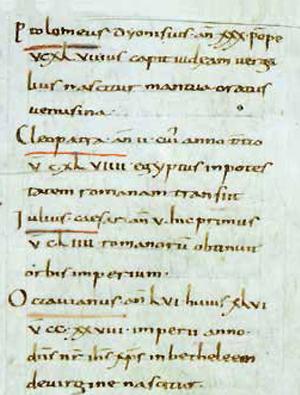 Ptolomeus dyonisius · an̄ · xxx · pompe
v cxl viiii us capit iudeam uergi
lius nascitur mantua oratius
uenusina ·
Cleopatra · an̄ · ii · cui anno tertio
v · cxl viiii · egyptus in potes
tatem romanam transiit
Iulius caesar · an̄ v · hic primus
v clıııı · romanorū obtinuit
orbis imperium ·
Octauianus · an̄ lvi · huius xlvi
v cc · xx viii · imperii anno ·
dn̄s nr̄ ih̄s xp̄s in bethleem
de uirgine nascitur ·